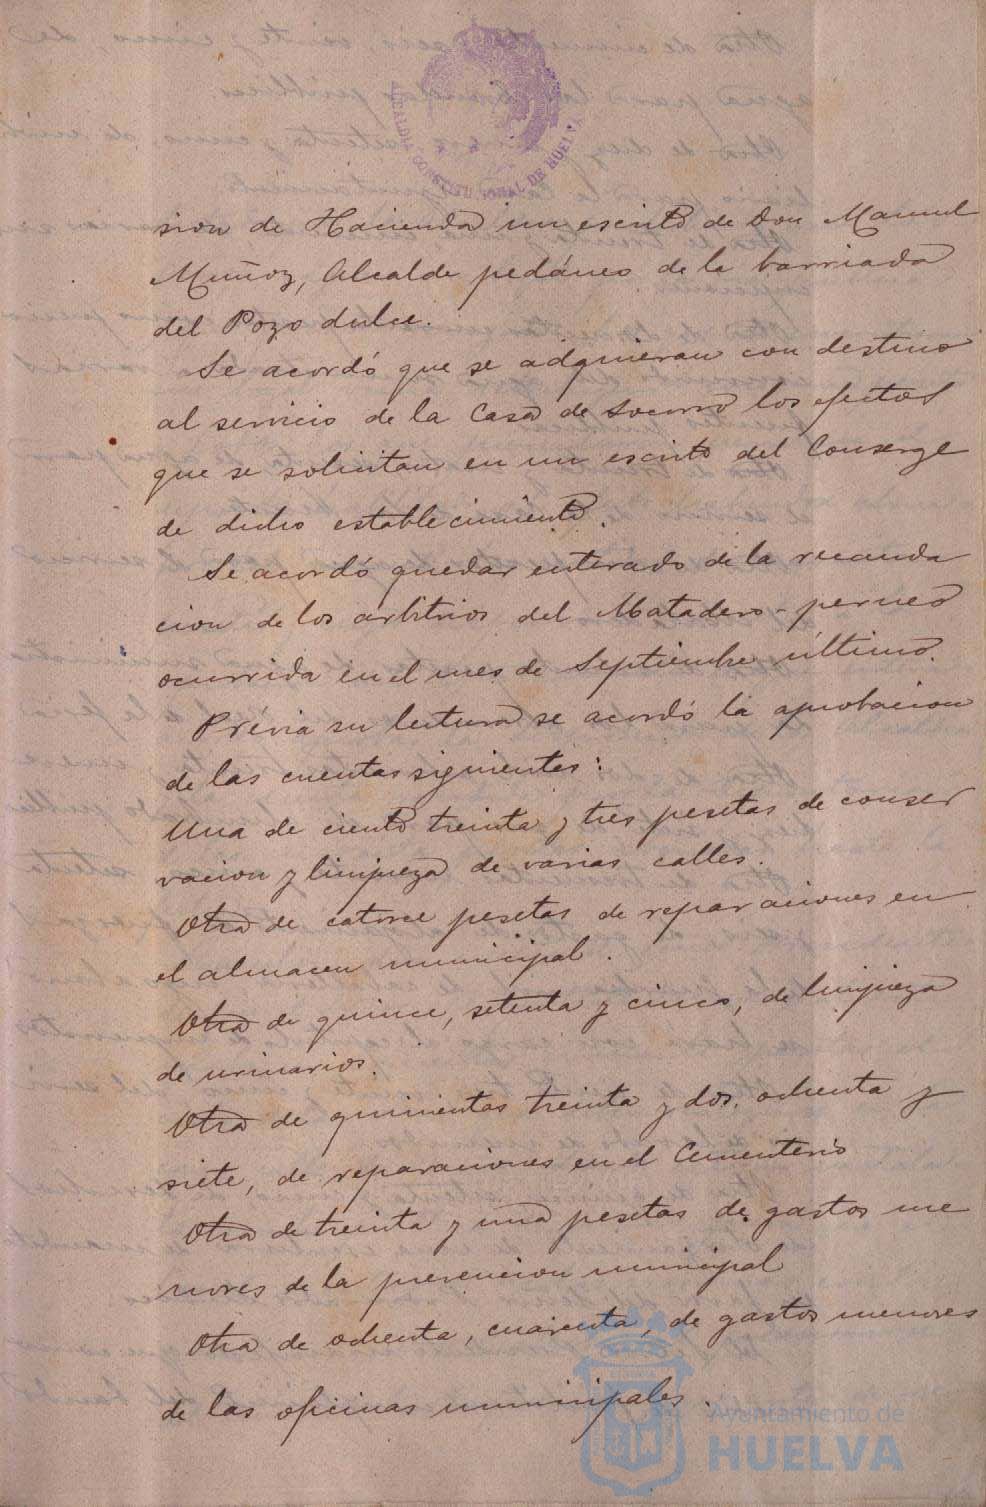 ALCALDIA CONSTITUCIONAL DE HUELVA
sion de Hacienda un escrito de Don Manuel
Muñoz, Alcalde pedáneo de la barriada
del Pozo dulce.
Se acordó que se adquieran con destino
al servicio de la Casa de Socorro los efectos
que se solicitan en un escrito del Conserge
de dicho establecimiento.
Se acordó quedar enterado de la recauda
cion de los arbitrios del Matadero-perneo
ocurrida en el mes de Septiembre último.
Prévia su lectura se acordó la aprobacion
de las cuentas siguientes:
Una de ciento treinta y tres pesetas de conser
vacion y limpieza de varias calles.
Otra de catorce pesetas de reparaciones en
el almacen municipal.
Otra de quince, setenta y cinco, de limpieza
de urinarios.
Otra de quinientas treinta y dos, ochenta y
siete, de reparaciones en el Cementerio
Otra de treinta y una pesetas de gastos me
nores de la prevencion municipal
Otra de ochenta, cuarenta, de gastos menores
de las oficinas municipales.
Ayuntamiento de
HUELVA